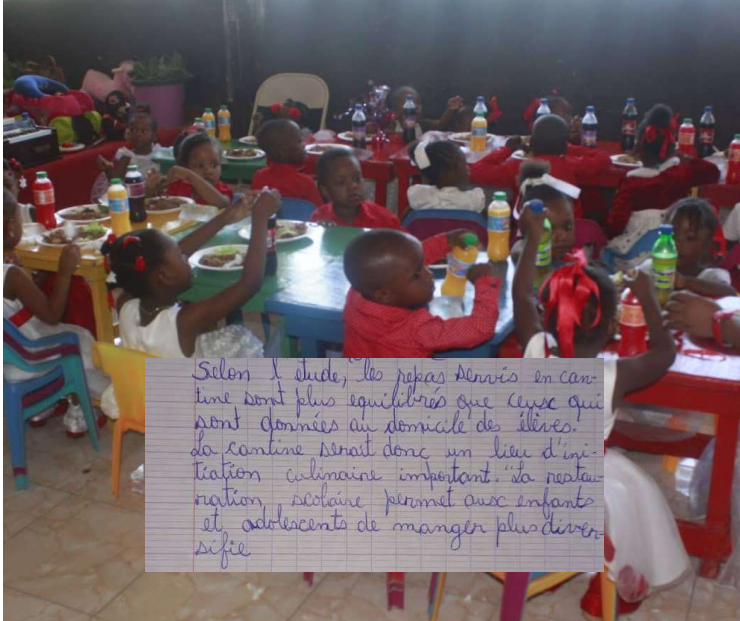 Selon l'étude, les repas servis en can-
tine sont plus équilibrés que ceux qui
sont données au domicile des élèves.
La cantine serait donc un lieu d'ini-
tiation culinaire important. "La restau-
ration scolaire permet aux enfants
et adolescents de manger plus diver-
sifie